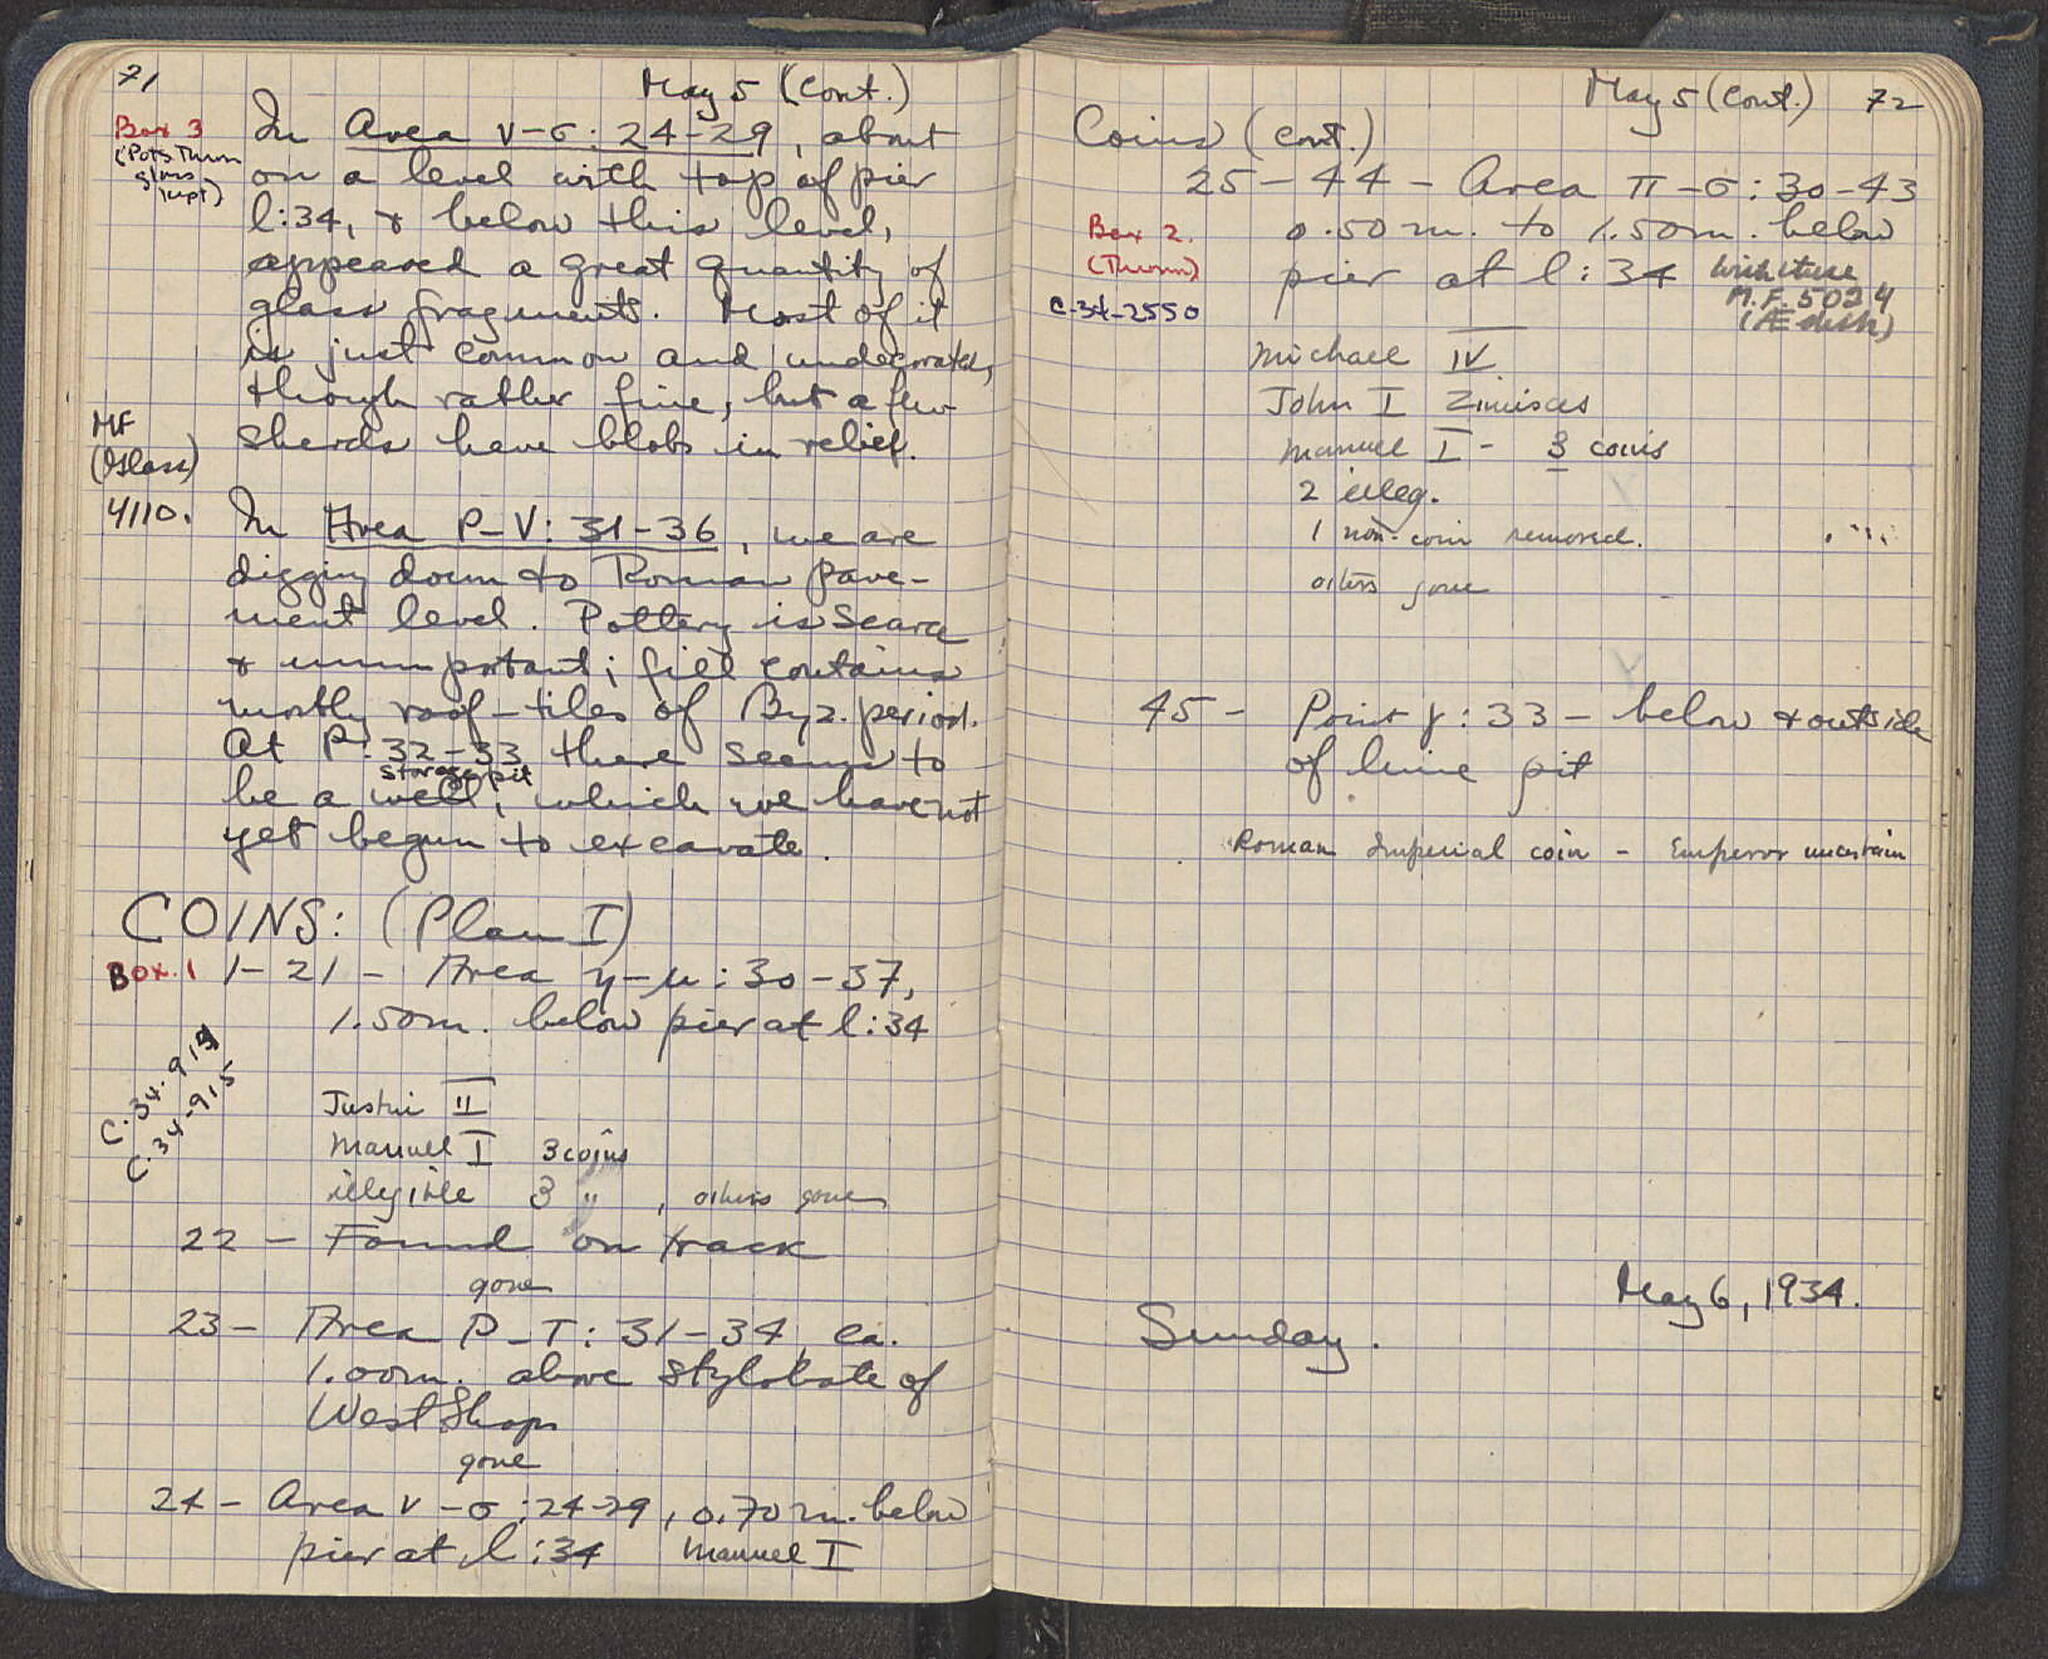 71
May 5 (Cont.)
Box 3
(Pots Thrown
glass
kept)
In Area ν-σ: 24-29, about
on a level with top of pier
l:34, & below this level,
appeared a great quantity of
glass fragments. Most of it
is just common and undecorated,
though rather fine, but a few
sherds have blobs in relief.
MF
(Glass)
4110.
In Area P-V: 31-36, we are
digging down to Roman pave-
ment level. Pottery is scarce
& unimportant; fill contains
mostly roof-tiles of Byz. period.
At P: 32-33 there seems to
storage pit
be a well, which we have not
yet begun to excavate.
COINS: (Plan I)
Box. 1
1-21 - Area η-μ: 30-37,
1.50m. below pier at l:34
C.34-914
C.34-915
Justin II
Manuel I 3 coins
illegible 3 " , others gone
22 - Found on track
gone
23 - Area P-T: 31-34, ca.
1.00m. above stylobate of
West Shops
gone
24 - Area ν-σ: 24-29, 0.70m. below
pier at l:34 Manuel I
May 5 (Cont.) 72
Coins (cont.)
25-44 - Area π-σ: 30-43
Box 2.
(Thrown)
C-34-2550
0.50m. to 1.50m. below
pier at l:34
With these
M.F. 5024
(Æ dish)
Michael IV
John I Zimisces
Manuel I - 3 coins
2 illeg.
1 non-coin removed.
others gone
45 - Point γ: 33 - below & outside
of lime pit
Roman Imperial coin - Emperor uncertain
May 6, 1934.
Sunday.